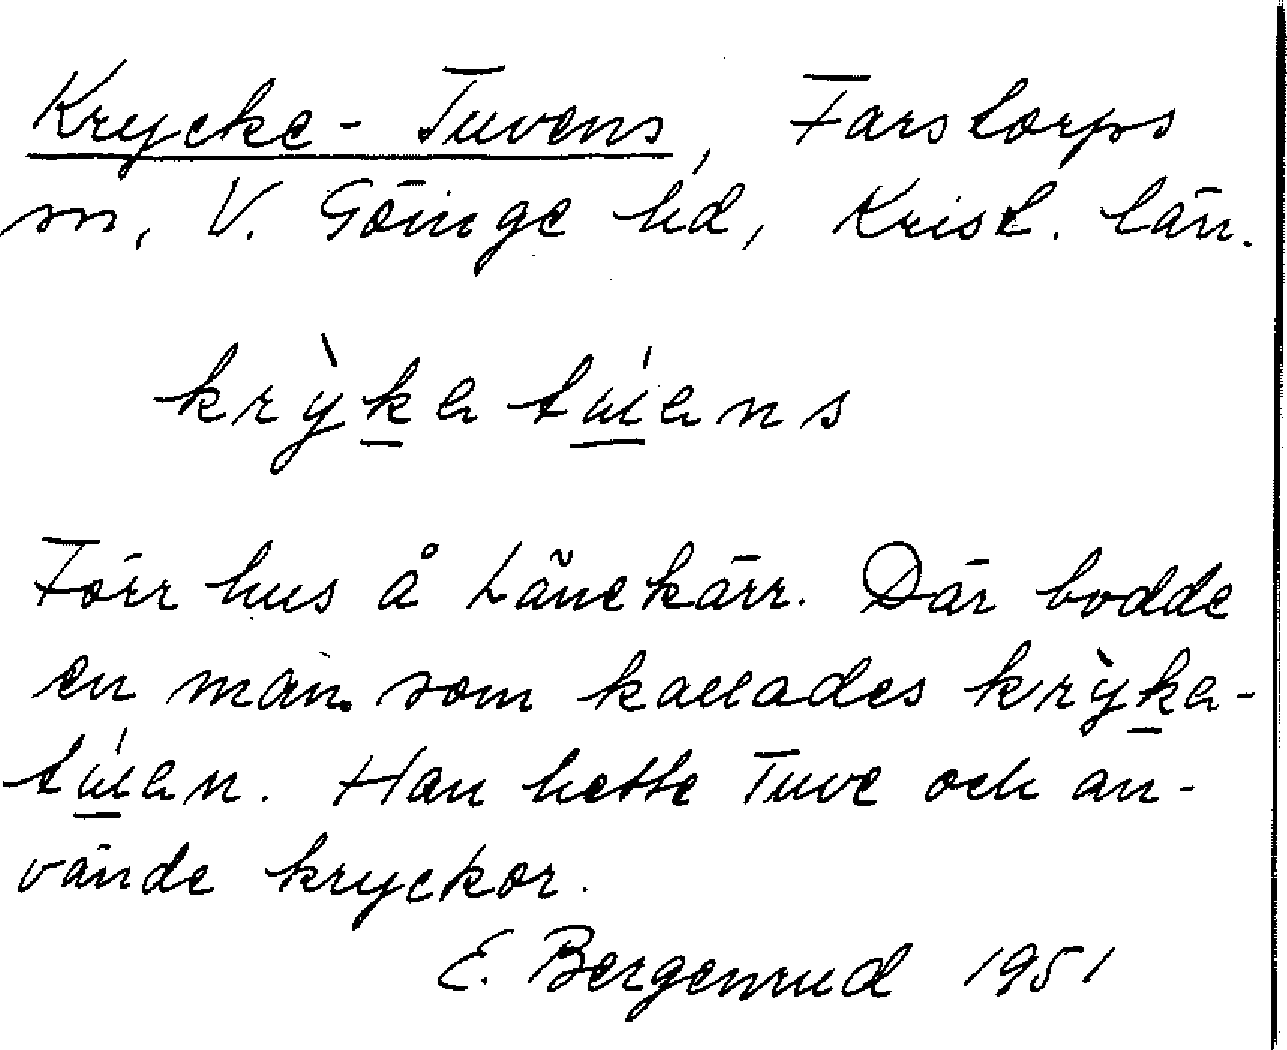 Krycke-Tuvens, Farstorps
sn, V. Göinge hd, Krist. län.
krỳka túɩans
Förr hus å Lånekärr. Där bodde
en man som kallades krỳka-
túɩan. Han hette Tuve och an-
vände kryckor.
E. Bergenrud 1951